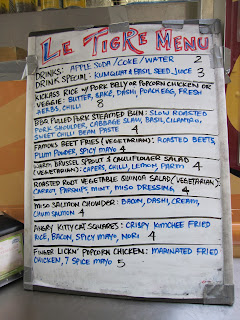 LE TIGRE MENU
DRINKS: APPLE SODA / COKE / WATER 2
DRINK SPECIAL: KUMQUAT & BASIL SEED JUICE 3
KICKASS RICE w/ PORK BELLY OR POPCORN CHICKEN OR
VEGGIE: BUTTER, KALE, DASHI, POACH EGG, FRESH
HERBS, CHILLI 8
BBQ PULLED PORK STEAMED BUN: SLOW ROASTED
PORK SHOULDER, CABBAGE SLAW, BASIL, CILANTRO,
SWEET CHILI BEAN PASTE 4
FAMOUS BEET FRIES (VEGETARIAN): ROASTED BEETS,
PLUM POWDER, SPICY MAYO 4
WARM BRUSSEL SPROUT & CAULIFLOWER SALAD
(VEGETARIAN): CAPERS, CHILLI, LEMON, PARM 4
ROASTED ROOT VEGETABLE QUINOA SALAD (VEGETARIAN):
CARROT, PARSNIPS, MINT, MISO DRESSING 4
MISO SALMON CHOWDER: BACON, DASHI, CREAM,
CHUM SALMON 4
ANGRY KITTY CAT SQUARES: CRISPY KIMCHEE FRIED
RICE, BACON, SPICY MAYO, NORI 4
FINGER LICKN' POPCORN CHICKEN: MARINATED FRIED
CHICKEN, 7 SPICE MAYO 5